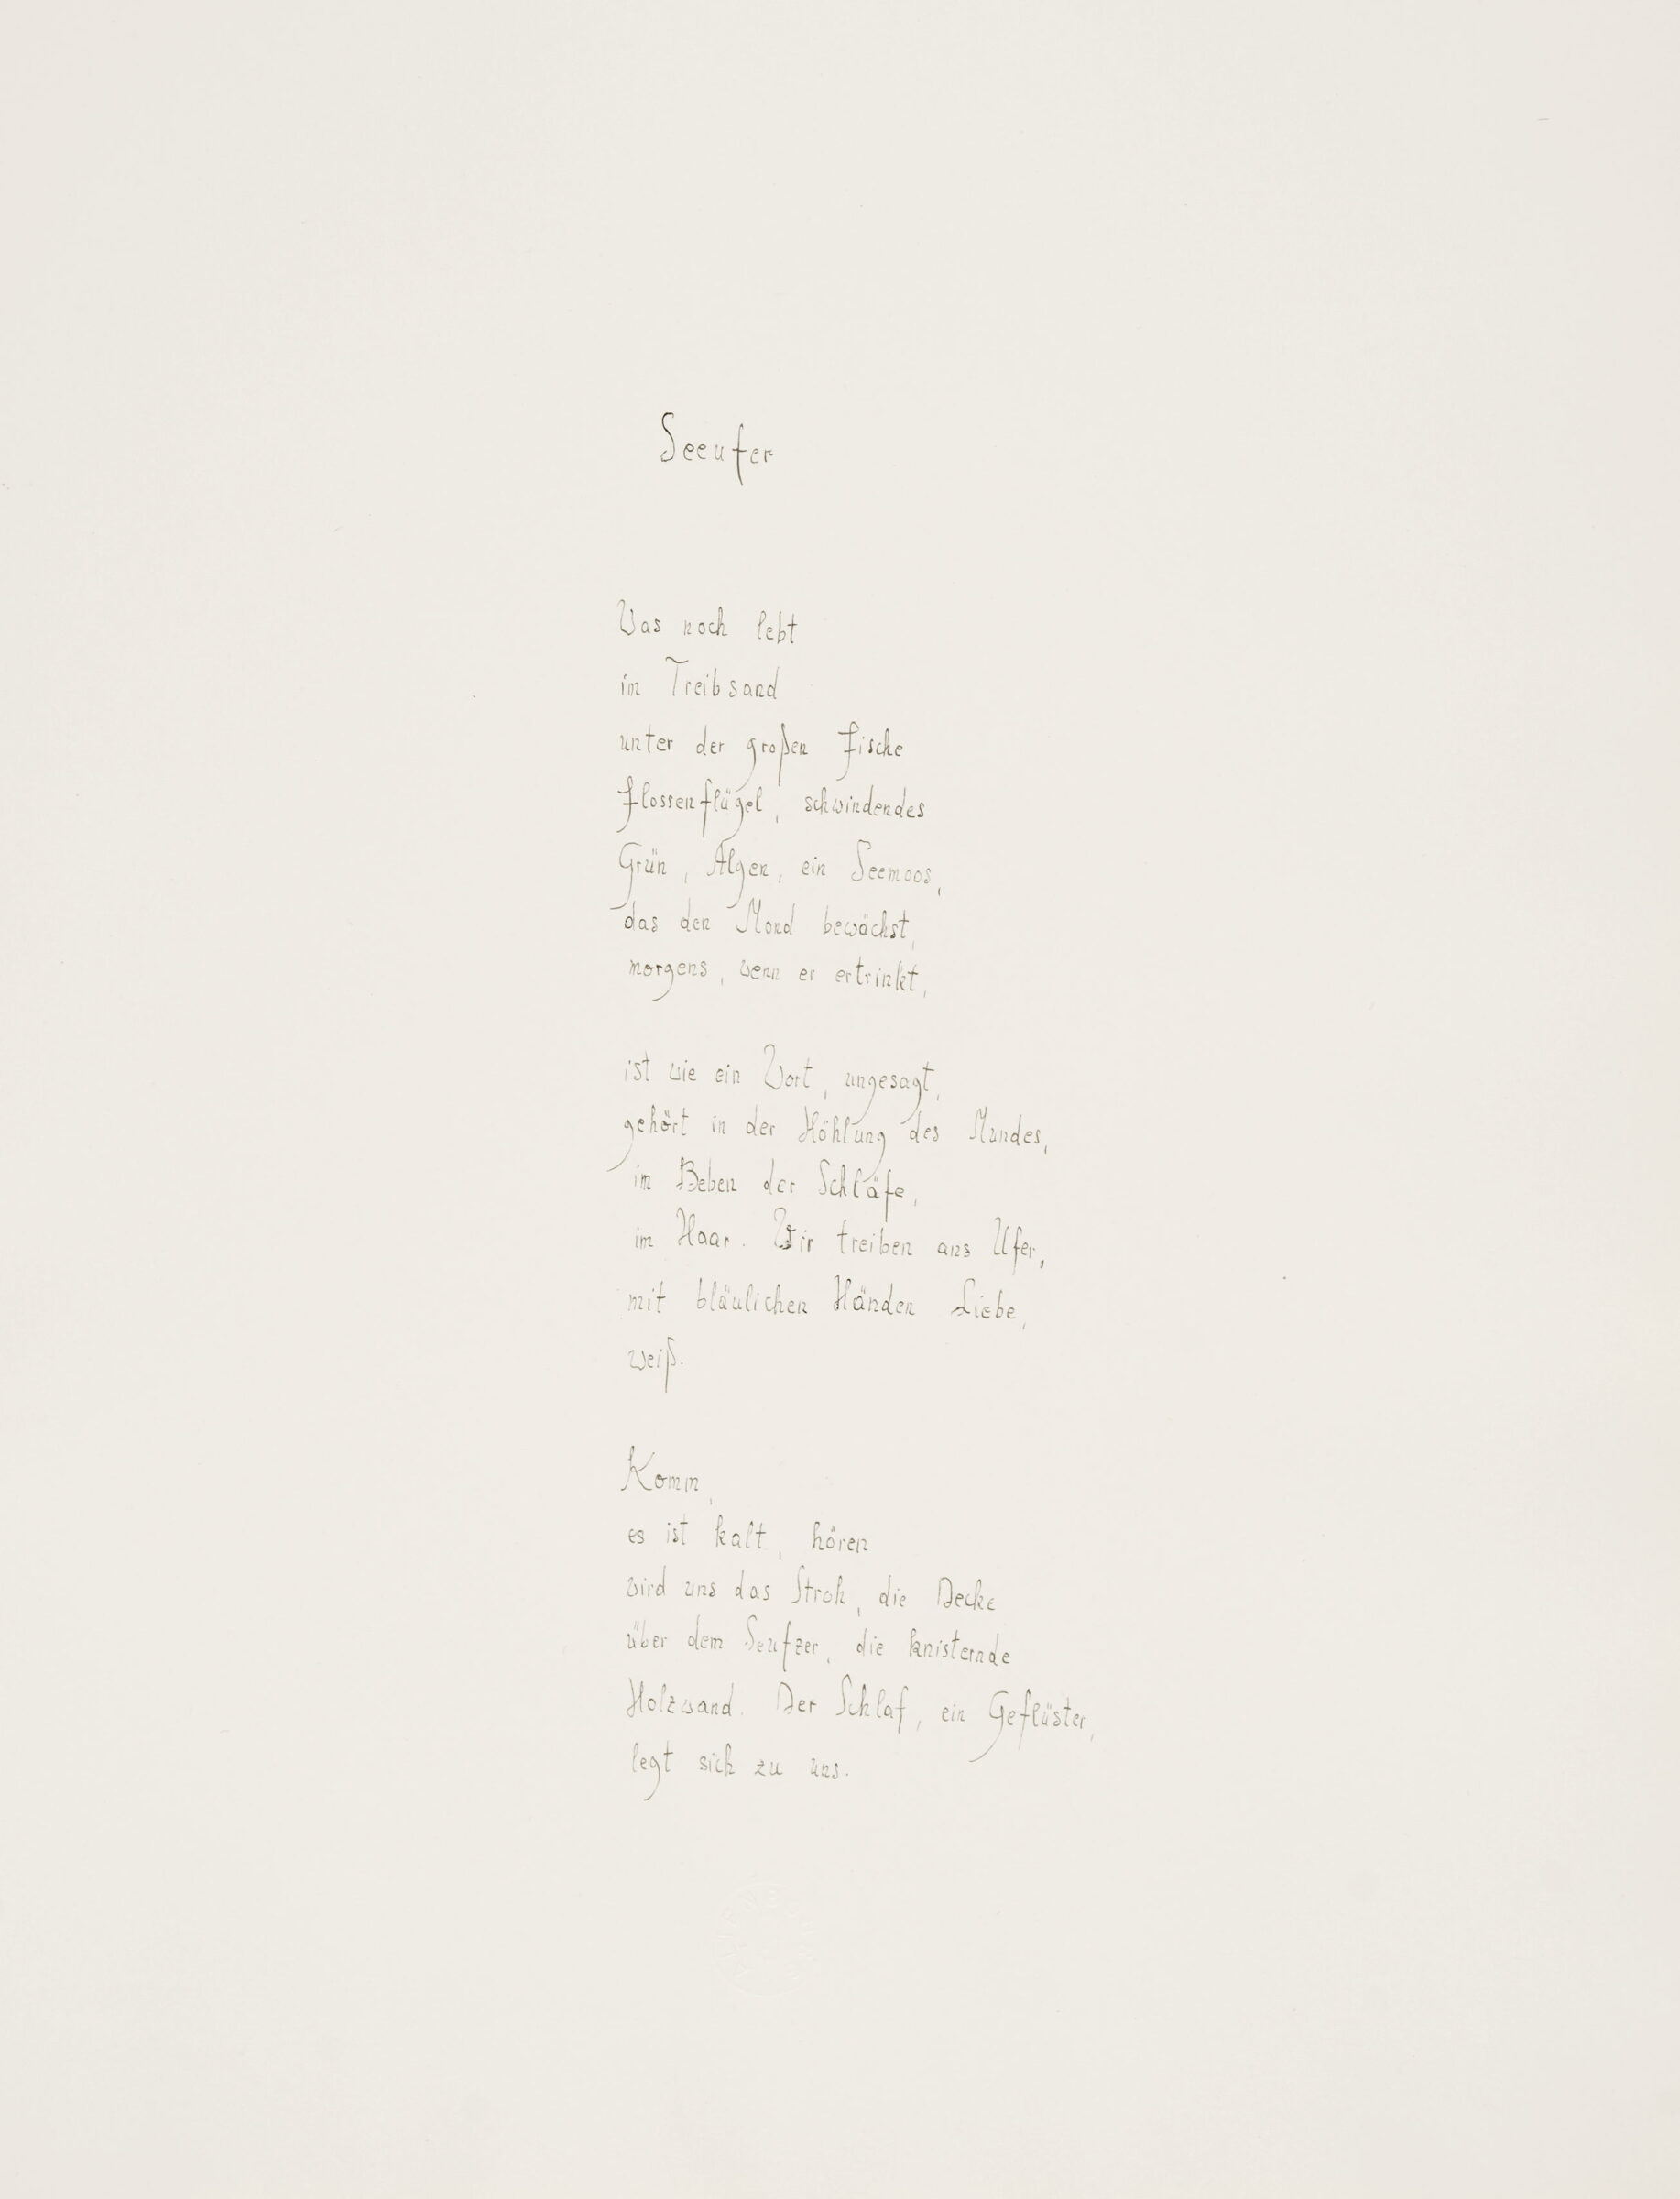 Seeufer
Was noch lebt
im Treibsand
unter der großen Fische
Flossenflügel, schwindendes
Grün, Algen, ein Seemoos,
das den Mond bewächst,
morgens, wenn er ertrinkt,
ist wie ein Wort, ungesagt,
gehört in der Höhlung des Mundes,
im Beben der Schläfe,
im Haar. Wir treiben ans Ufer,
mit bläulichen Händen Liebe,
weiß.
Komm,
es ist kalt, hören
wird uns das Stroh, die Decke
über dem Seufzer, die knisternde
Holzwand. Der Schlaf, ein Geflüster,
legt sich zu uns.